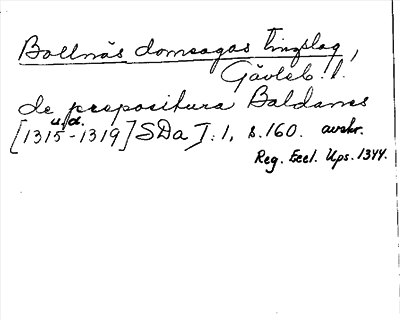 Bollnäs domsagas tingslag,
Gävleb. l.
de prepositura Baldanes
u.d.
[1315-1319] SDa I: 1, s. 160. avskr.
Reg. Eccl. Ups. 1344.